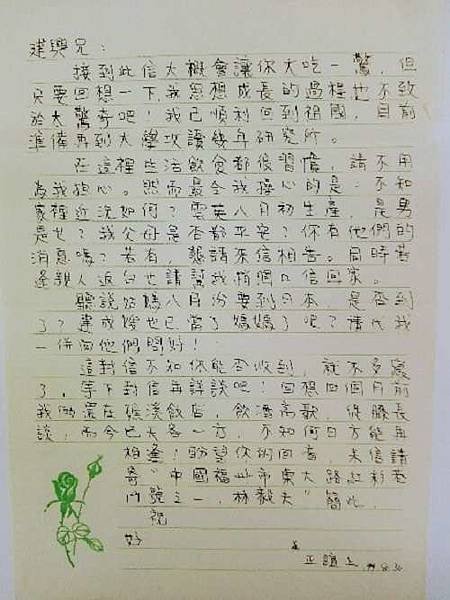 建興兄：
接到此信大概會讓你大吃一驚，但
只要回想一下，我思想成長的過程也不致
於太驚奇吧！我已順利回到祖國，目前
準備再到大學攻讀幾年研究所。
在這裡生活飲食都很習慣，請不用
為我担心。然而最令我擔心的是：不知
家裡近況如何？雲英八月初生產，是男
是女？我父母是否都平安？你有他們的
消息嗎？若有，懇請來信相告。同時若
逢親人返台也請幫我捎個口信回家。
聽說 媽八月份要到日本，是否到
了？建成嫂也已當了媽媽了吧？請代我
一併向他們問好！
這封信不知你能否收到，就不多寫
了，等下封信再詳談吧！回想四個月前
我倆還在 飯店，飲酒高歌， 長
談，而今已天各一方，不知何日方能再
相逢！盼望你的回音，來信請
寄"中國福州市東大路紅杉巷
 號之一，林毅夫"簡此，
祝
好
弟
正誼上